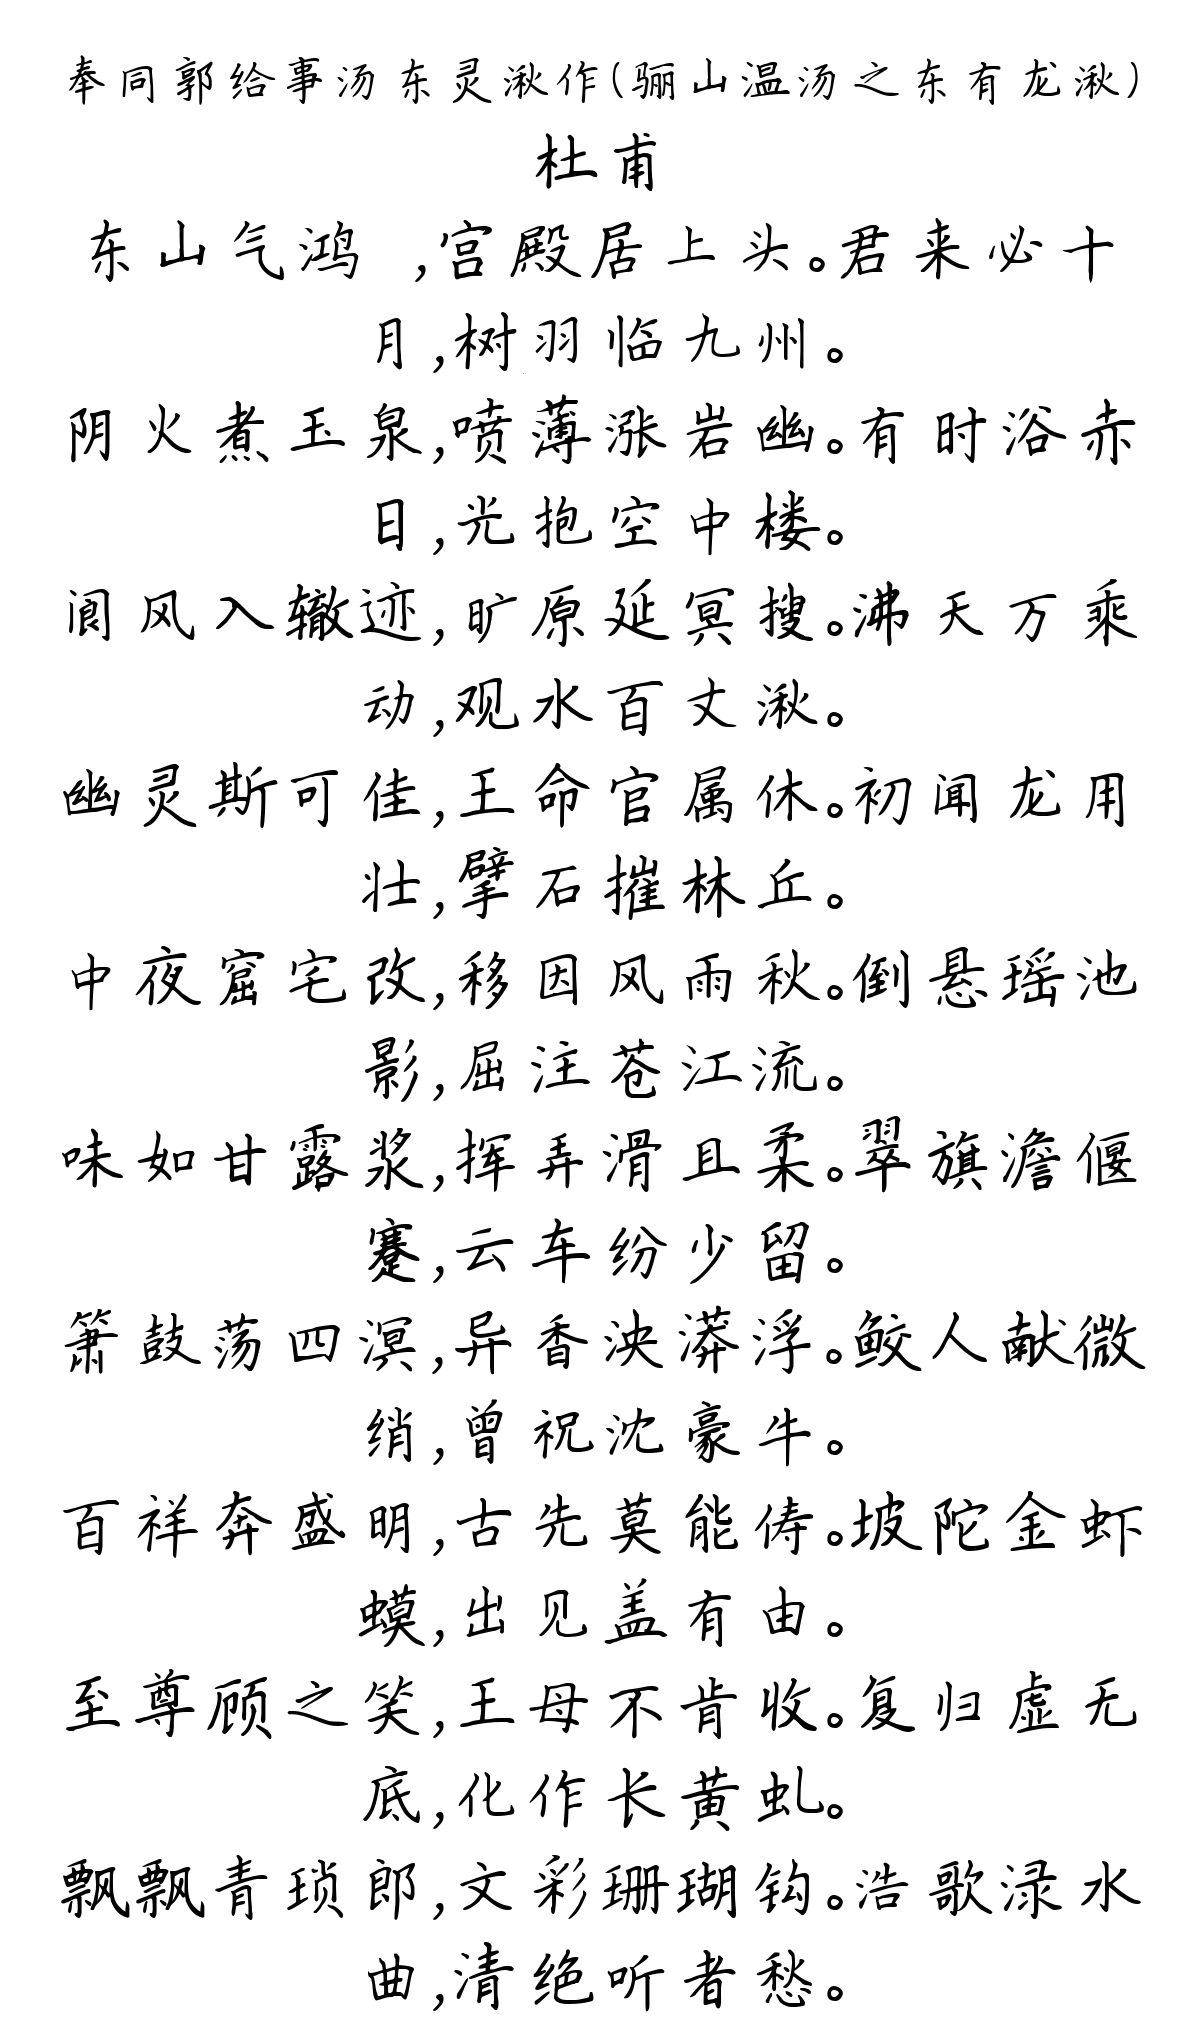 奉同郭给事汤东灵湫作(骊山温汤之东有龙湫)
杜甫
东山气鸿 ,宫殿居上头。君来必十
月,树羽临九州。
阴火煮玉泉,喷薄涨岩幽。有时浴赤
日,光抱空中楼。
阆风入辙迹,旷原延冥搜。沸天万乘
动,观水百丈湫。
幽灵斯可佳,王命官属休。初闻龙用
壮,擘石摧林丘。
中夜窟宅改,移因风雨秋。倒悬瑶池
影,屈注苍江流。
味如甘露浆,挥弄滑且柔。翠旗澹偃
蹇,云车纷少留。
箫鼓荡四溟,异香泱漭浮。鲛人献微
绡,曾祝沈豪牛。
百祥奔盛明,古先莫能俦。坡陀金虾
蟆,出见盖有由。
至尊顾之笑,王母不肯收。复归虚无
底,化作长黄虬。
飘飘青琐郎,文彩珊瑚钩。浩歌渌水
曲,清绝听者愁。